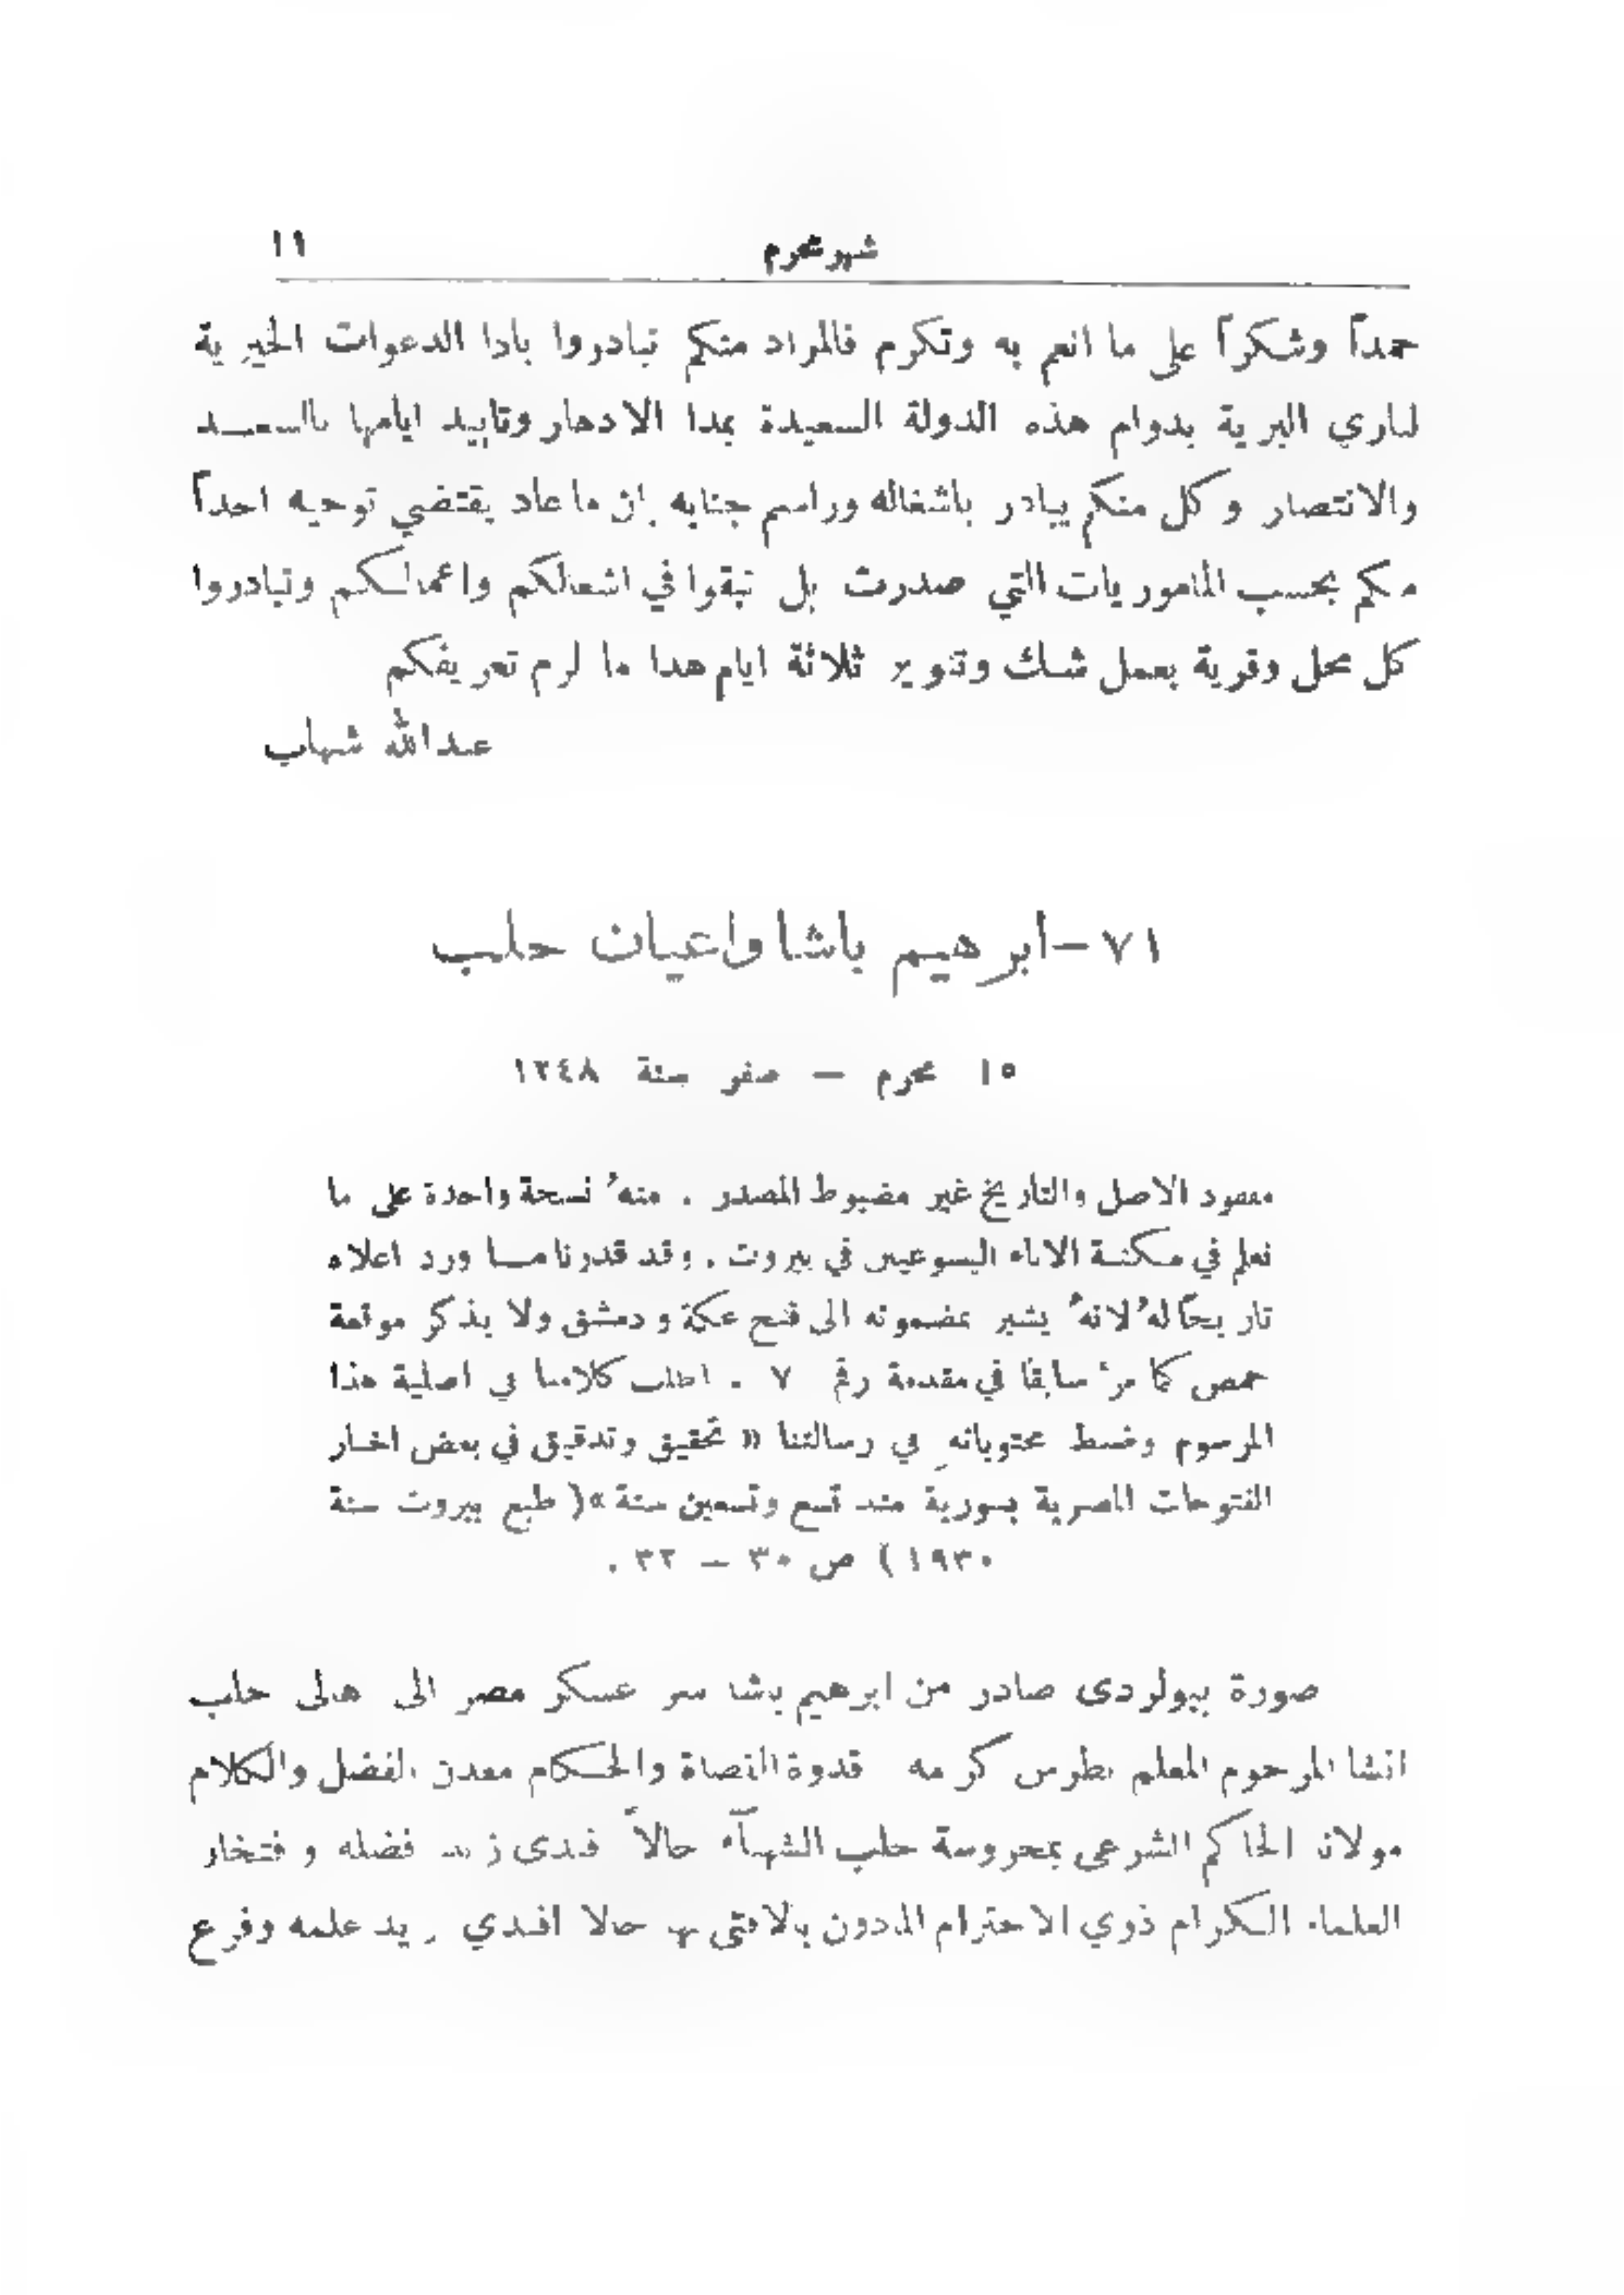 شهر محرم ١١
حمداً وشكراً على ما انعم به وتكرم فالمراد منكم تبادروا بادا الدعوات الخيرية
لباري البرية بدوام هذه الدولة السعيدة بمدا الادهار وتابيد ايامها بالسعد
والانتصار وكل منكم يبادر باشغاله وراسم جنابه بان ما عاد يقتضي توجيه احداً
منكم بحسب المامور يات التي صدرت بل تبقوا في اشغالكم واعمالكم وتبادروا
كل محل وقرية بعمل شنك وتنوير ثلاثة ايام هذا ما لزم تعريفكم
عبدالله شهاب
٧١ – ابرهيم باشا واعيان حلب
١٥ محرم – صفر سنة ١٢٤٨
مفقود الاصل والتاريخ غير مضبوط المصدر . منهُ نسخة واحدة على ما
نعلم في مكتبة الاباء اليسوعيين في بيروت . وقد قدرنا ما ورد اعلاه
تاريخاً لهُ لانهُ يشير بمضمونه الى فتح عكة ودمشق ولا يذكر موقعة
حمص كما مرَّ سابقًا في مقدمة رقم ٧ . اطلب كلامنا في اصلية هذا
المرسوم وضبط محتوياتهِ في رسالتنا « تحقيق وتدقيق في بعض اخبار
الفتوحات المصرية بسورية منذ تسع وتسعين سنة » ( طبع بيروت سنة
١٩٣٠ ) ص ٣٠ – ٣٢ .
صورة بيولردى صادر من ابرهيم باشا سر عسكر مصر الى هالى حلب
انشا المرحوم المعلم بطرس كرامه قدوة القضاة والحكام معدن الفضل والكلام
مولانا الحاكم الشرعى بمحروسة حلب الشهبآء حالاً فندى زيد فضله وفتخار
العلماء الكرام ذوي الاحترام المادون بالافتى بها حالا افندي زيد علمه وفرع